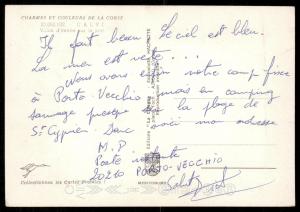 CHARMES ET COULEURS DE LA CORSE
CALVI
Il fait beau. Le ciel est bleu.
La mer est verte...
Nous avons enfin notre camp fixe
à Porto-Vecchio mais en camping
sauvage presque sur la plage de
St Cyprien. Donc voici mon adresse
M. P
Poste restante
20210 PORTO-VECCHIO
Salut
Collectionnez les Cartes